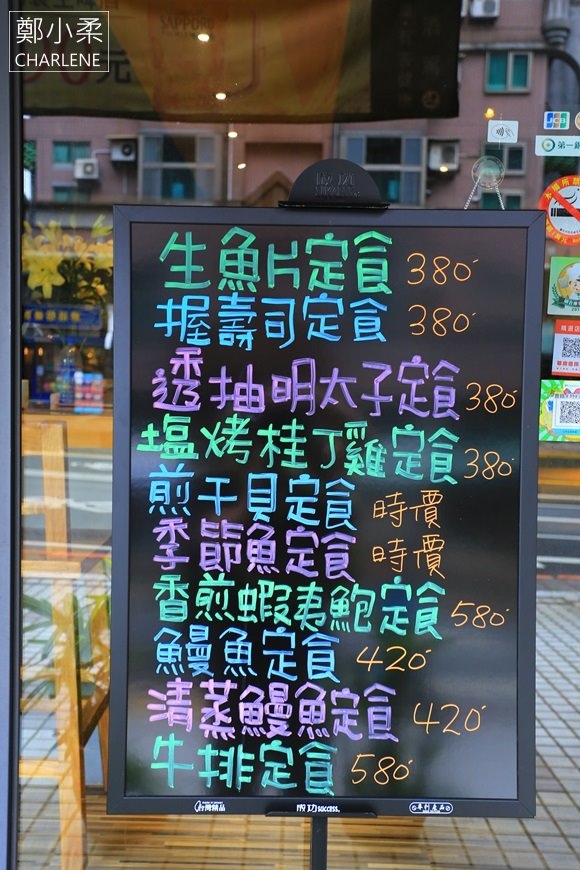 鄭小柔
CHARLENE
SAPPORO
元
JCB
第一銀
成功
生魚片定食 380
握壽司定食 380
透抽明太子定食 380
塩烤桂丁雞定食 380
煎干貝定食 時價
季節魚定食 時價
香煎蝦夷鮑定食 580
鰻魚定食 420
清蒸鰻魚定食 420
牛排定食 580
台灣精品
成功 success.
專利產品